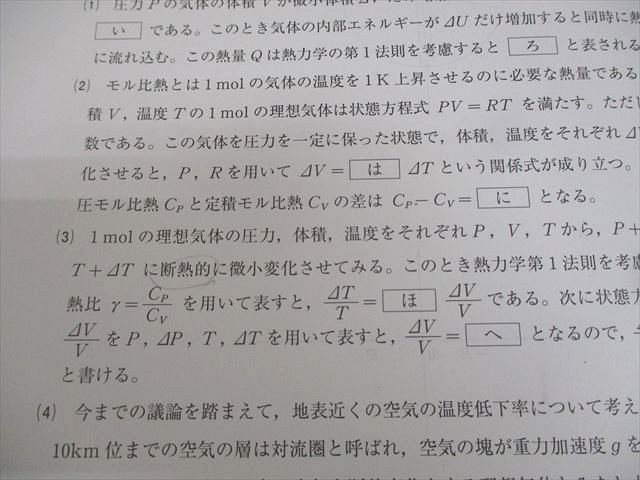 (1) 圧力 P の気体の体積 V が微小体積
い である。このとき気体の内部エネルギーが ΔU だけ増加すると同時に熱
に流れ込む。この熱量 Q は熱力学の第1法則を考慮すると ろ と表される
(2) モル比熱とは 1 mol の気体の温度を 1 K 上昇させるのに必要な熱量である
積 V，温度 T の 1 mol の理想気体は状態方程式 PV = RT を満たす。ただし
数である。この気体を圧力を一定に保った状態で，体積，温度をそれぞれ Δ
化させると，P，R を用いて ΔV = は ΔT という関係式が成り立つ。
圧モル比熱 CP と定積モル比熱 CV の差は CP − CV = に となる。
(3) 1 mol の理想気体の圧力，体積，温度をそれぞれ P，V，T から，P +
T + ΔT に断熱的に微小変化させてみる。このとき熱力学第1法則を考慮
熱比 γ = CP/CV を用いて表すと，ΔT/T = ほ ΔV/V である。次に状態方
ΔV/V を P，ΔP，T，ΔT を用いて表すと，ΔV/V = へ となるので，
と書ける。
(4) 今までの議論を踏まえて，地表近くの空気の温度低下率について考え
10km 位までの空気の層は対流圏と呼ばれ，空気の塊が重力加速度 g を